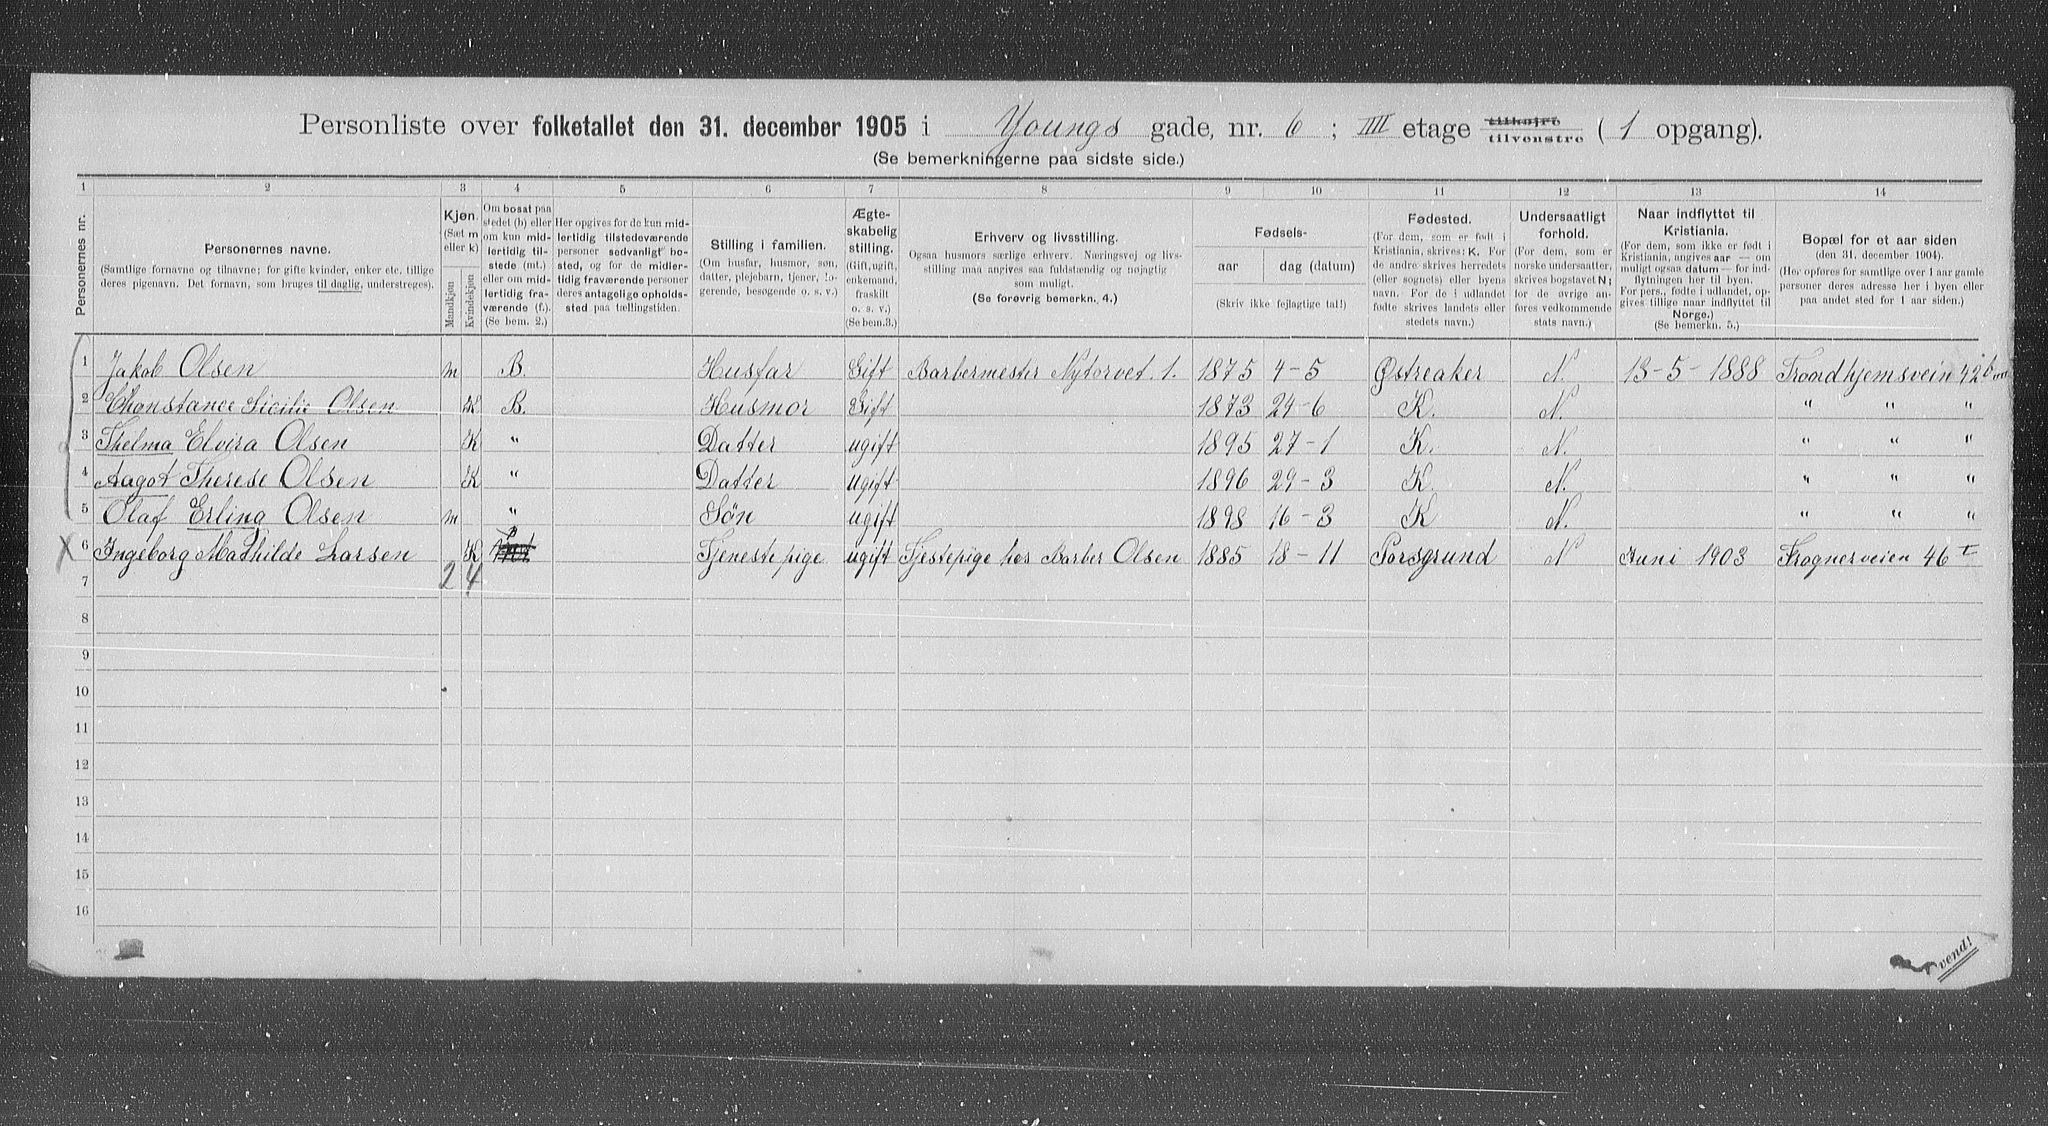 Personliste over folketallet den 31. december 1905 i Youngs gade, nr. 6 ; IIII etage tilhøjre tilvenstre ( 1 opgang).
(Se bemerkningerne paa sidste side.)
1 2 3 4 5 6 7 8 9 10 11 12 13 14
Personernes nr.
Personernes navne.
(Samtlige fornavne og tilnavne; for gifte kvinder, enker etc. tillige
deres pigenavn. Det fornavn, som bruges til daglig, understreges).
Kjøn.
(Sæt m
eller k)
Mandkjøn
Kvindekjøn
Om bosat paa
stedet (b) eller
om kun mid-
lertidig til-
stede (mt.)
eller om mid-
lertidig fra-
værende (f.).
(Se bem. 2.)
Her opgives for de kun mid-
lertidig tilstedeværende
personer sedvanligt bo-
sted, og for de midler-
tidig fraværende personer
deres antagelige opholds-
sted paa tællingstiden.
Stilling i familien.
(Om husfar, husmor, søn,
datter, plejebarn, tjener, lo-
gerende, besøgende o. s. v.)
Ægte-
skabelig
stilling.
(Gift, ugift,
enkemand,
fraskilt
o. s. v.)
(Se bem.3.)
Erhverv og livsstilling.
Ogsaa husmors særlige erhverv. Næringsvej og livs-
stilling maa angives saa fuldstændig og nøjagtig
som muligt.
(Se forøvrig bemerkn. 4.)
Fødsels-
aar
dag (datum)
(Skriv ikke fejlagtige tal!)
Fødested.
(For dem, som er født i
Kristiania, skrives: K. For
de andre skrives herredets
(eller sognets) eller byens
navn. For de i udlandet
fødte skrives landets eller
stedets navn.)
Undersaatligt
forhold.
(For dem, som er
norske undersaatter,
skrives bogstavet N;
for de øvrige an-
føres vedkommende
stats navn.)
Naar indflyttet til
Kristiania.
(For dem, som ikke er født i
Kristiania, angives aar — om
muligt ogsaa datum — for ind-
flytningen her til byen.
For pers., født i udlandet, op-
gives tillige naar indflyttet til
Norge.)
(Se bemerkn. 5.)
Bopæl for et aar siden
(den 31. december 1904).
(Her opføres for samtlige over 1 aar gamle
personer deres adresse her i byen eller
paa andet sted for 1 aar siden.)
1 Jakob Olsen m B. Husfar Gift Barbermester Nytorvet. 1. 1875 4-5 Østreaker N. 13-5-1888 Trondhjemsvein 42 b
2 Chonstance Sicilie Olsen K B. Husmor Gift 1873 24-6 K. N. " " "
3 Thelma Elvira Olsen K " Datter ugift 1895 27-1 K. N. " " "
4 Aagot Therese Olsen K " Datter ugift 1896 29-3 K. N. " " "
5 Olaf Erling Olsen m " Søn ugift 1898 16-3 K N. " " "
6 Ingeborg Mathilde Larsen K Tjenestepige ugift Tjestepige hos Barber Olsen 1885 18-11 Porsgrund N Juni 1903 Frognerveien 46 I
7 2 4
8
9
10
11
12
13
14
15
16
vend!